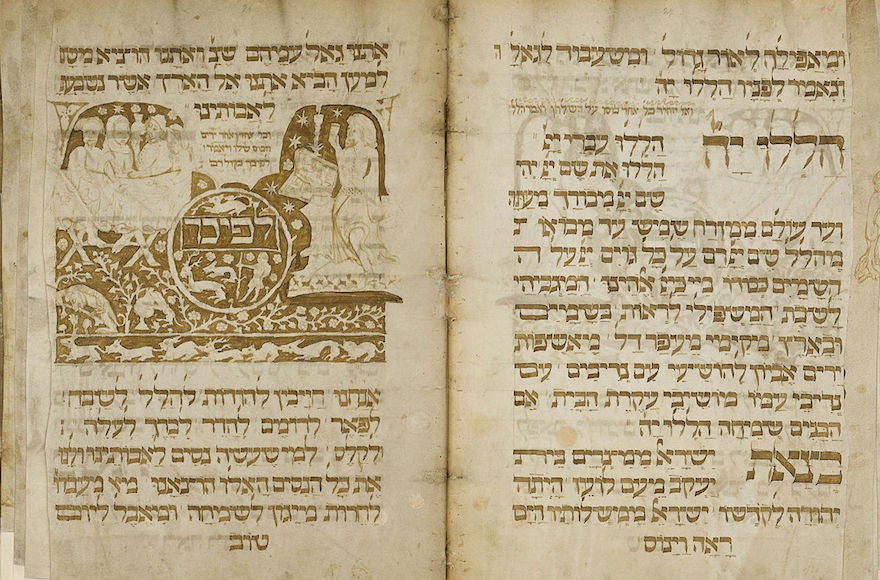 אתנו גאל עמיהם שנ ואותנו הוציא משם
למען הביא אתנו אל הארץ אשר נשבע
לאבותינו
וכל אחד ואחד ירים
הכוס שלו ויאמרו
לפיכך בקול רם
לפיכך
אנחנו חייבין להודות להלל לשבח
לפאר לרומם להדר לברך לעלה
ולקלס למי שעשה נסים לאבותינו ולנו
את כל הנסים האלו הוציאנו מא מעבדו
לחרות מייגון לשמחה ומאבל ליום
טוב
ומאפילה לאור גדול ומשעבוד לגאול
ונאמר לפניו הללו יה
כל אחד הכוס על השולחן
הללו יה הללו עבדי יי
הללו את שם יי יהי
שם יי מבורך מעתה
ועד עולם ממזרח שמש עד מבואו
מהלל שם יי רם על כל גוים יי על ה
השמים כבודו מי כיי אלהינו המגביהי
לשבת המשפילי לראות בשמים
ובארץ מקימי מעפר דל מאשפות
ירים אביון להושיבי עם נדיבים עם
נדיבי עמו מושיבי עקרת הבית אם
הבנים שמיחה הללו יה
בצאת ישראל ממצרים בית
יעקב מעם לועז היתה
יהודה לקדשו ישראל ממשלותיו הים
ראה וינוס